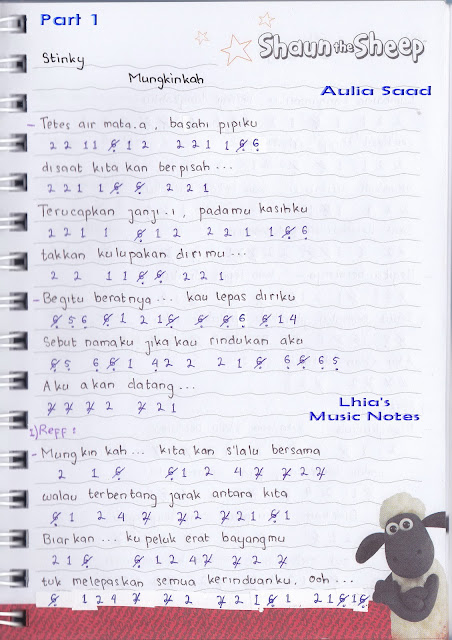 Part 1
Shaun the Sheep
Stinky
Mungkinkah
Aulia Saad
- Tetes air mata.a , basahi pipiku
2 2 1 1 6 1 2 2 2 1 1 6 6
disaat kita kan berpisah ...
2 2 1 1 6 6 2 2 1
Terucapkan janji.i , padamu kasihku
2 2 1 1 6 1 2 2 2 1 1 6 6
takkan kulupakan dirimu ...
2 2 1 1 6 6 2 2 1
- Begitu beratnya ... kau lepas diriku
6 5 6 6 1 2 1 6 6 6 6 6 1 4
Sebut namaku jika kau rindukan aku
6 5 6 6 1 4 2 2 2 1 6 6 6 6 5
Aku akan datang ...
7 7 7 2 7 2 1
Lhia's
Music Notes
1) Reff :
- Mungkin kah ... kita kan s'lalu bersama
2 1 6 6 1 2 4 7 7 2 7
walau terbentang jarak antara kita
6 1 2 4 7 7 2 7 2 1 6 1
Biarkan ... ku peluk erat bayangmu
2 1 6 6 1 2 4 7 7 2 7
tuk melepaskan semua kerinduanku, ooh ...
6 1 2 4 7 7 2 7 2 1 6 1 2 1 6 1 6